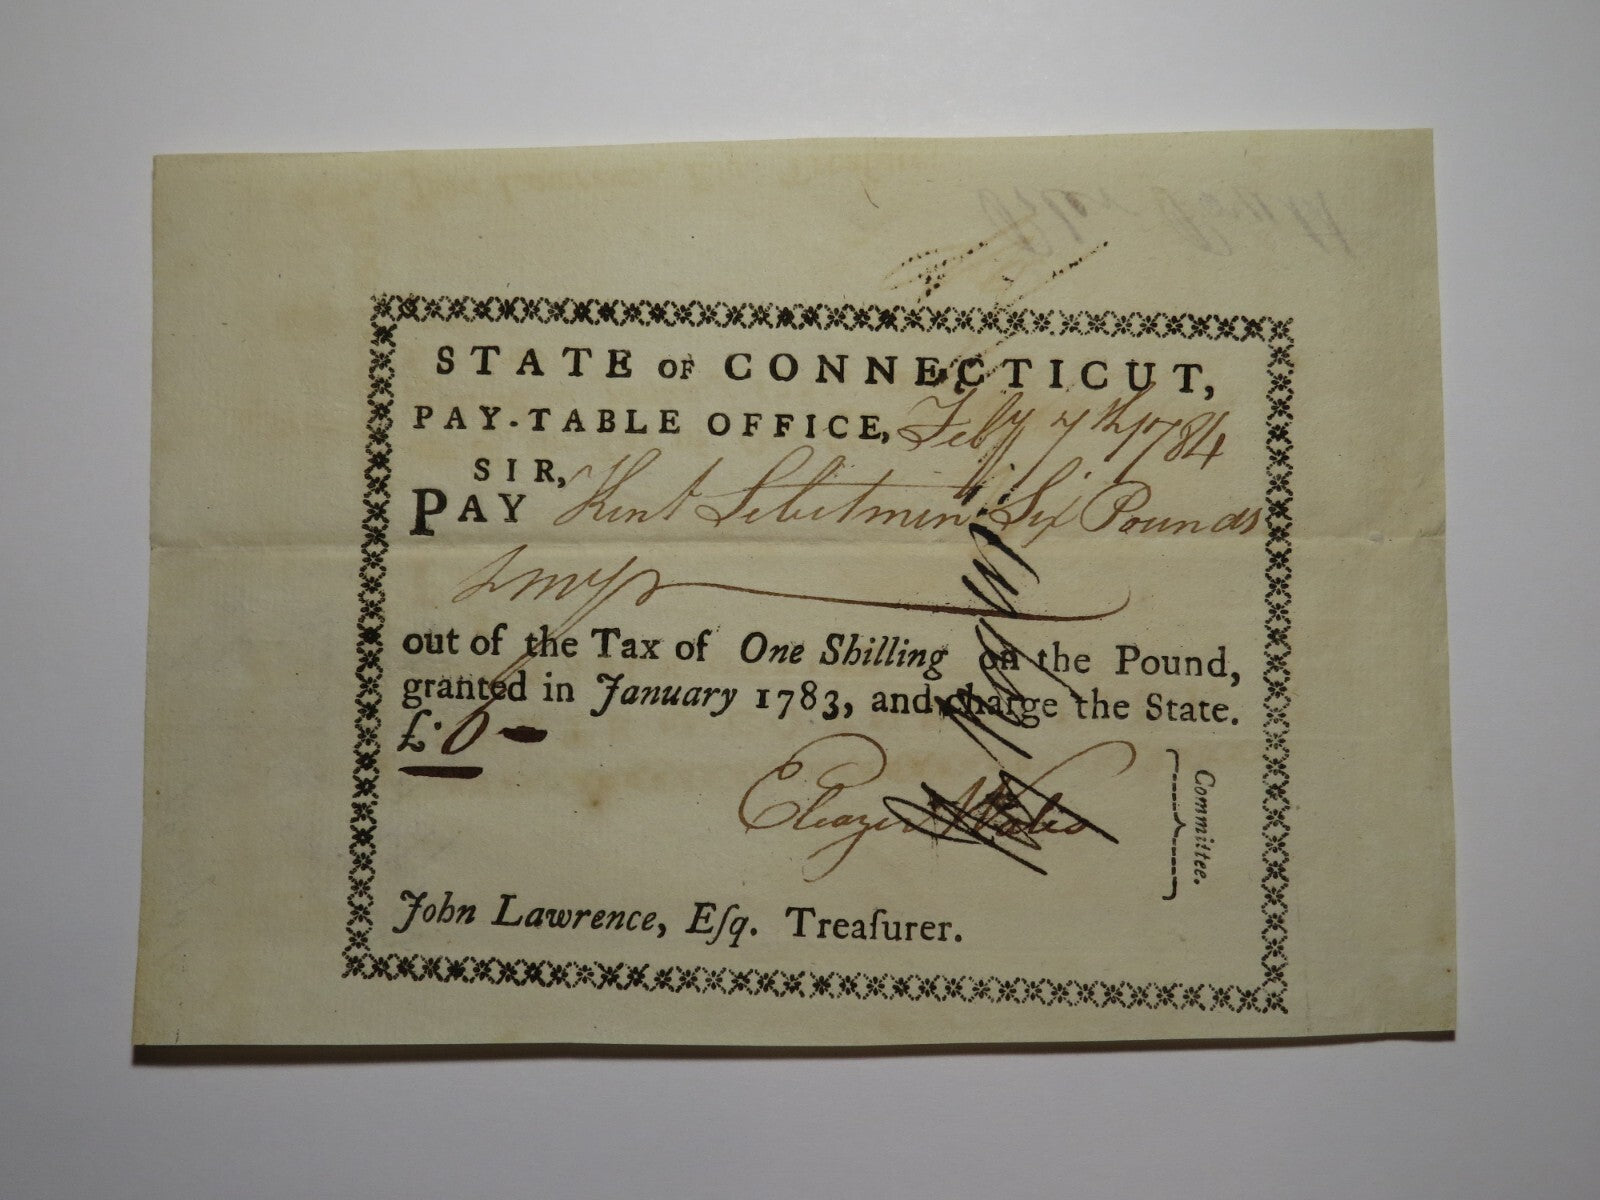 STATE OF CONNECTICUT,
PAY-TABLE OFFICE, Feby 7th 1784
SIR,
PAY Kent Selectmen Six Pounds
out of the Tax of One Shilling on the Pound,
granted in January 1783, and charge the State.
£. 6 -
Eleazer Wales
Committee.
John Lawrence, Eſq. Treaſurer.